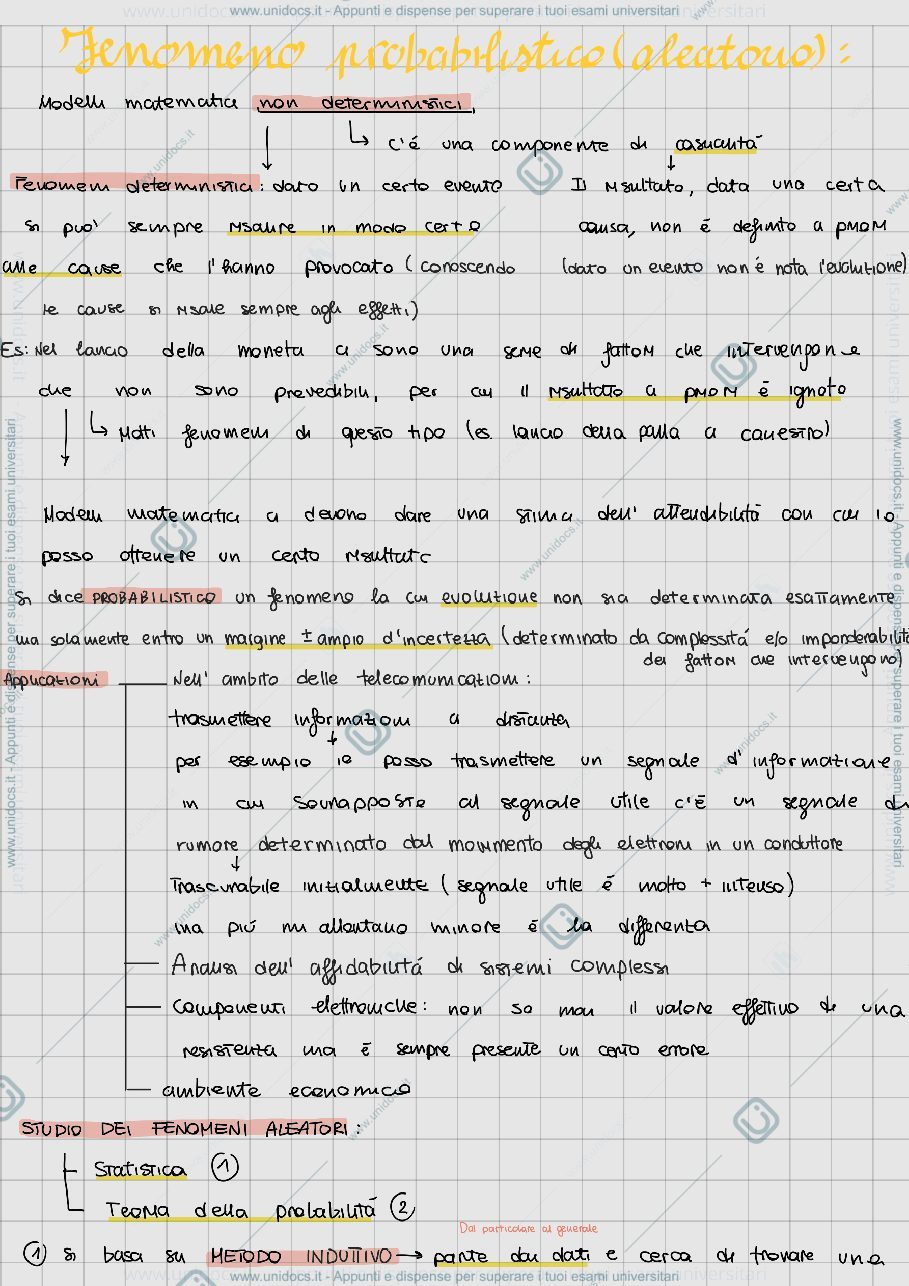 www.unidocs.it - Appunti e dispense per superare i tuoi esami universitari
Fenomeno probabilistico (aleatorio):
Modelli matematici non deterministici,
↳ c'é una componente di casualitá
Fenomeni deterministici: dato un certo evento
si puo' sempre risalire in modo certo
alle cause che l'hanno provocato (conoscendo
le cause si risale sempre agli effetti)
Il risultato, data una certa
causa, non é definito a priori
(dato un evento non é nota l'evoluzione)
Es: Nel lancio della moneta ci sono una serie di fattori che intervengono e
che non sono prevedibili, per cui il risultato a priori é ignoto
↳ Molti fenomeni di questo tipo (es. lancio della palla a canestro)
Modelli matematici ci devono dare una stima dell' attendibilitá con cui io
posso ottenere un certo risultato
Si dice PROBABILISTICO un fenomeno la cui evoluzione non sia determinata esattamente
ma solamente entro un margine ± ampio d'incertezza (determinato da complessitá e/o imponderabilitá
dei fattori che intervengono)
Applicazioni
Nell' ambito delle telecomunicazioni:
trasmettere informazioni a distanza
per esempio io posso trasmettere un segnale d'informazione
in cui sovrapposto al segnale utile c'é un segnale di
rumore determinato dal movimento degli elettroni in un conduttore
Trascurabile inizialmente (segnale utile é molto + intenso)
ma piú mi allontano minore é la differenza
Analisi dell' affidabilitá di sistemi complessi
componenti elettroniche: non so mai il valore effettivo di una
resistenza ma é sempre presente un certo errore
ambiente economico
STUDIO DEI FENOMENI ALEATORI:
Statistica ①
Teoria della probabilitá ②
Dal particolare al generale
① si basa su METODO INDUTTIVO → parte dai dati e cerca di trovare una
www.unidocs.it - Appunti e dispense per superare i tuoi esami universitari